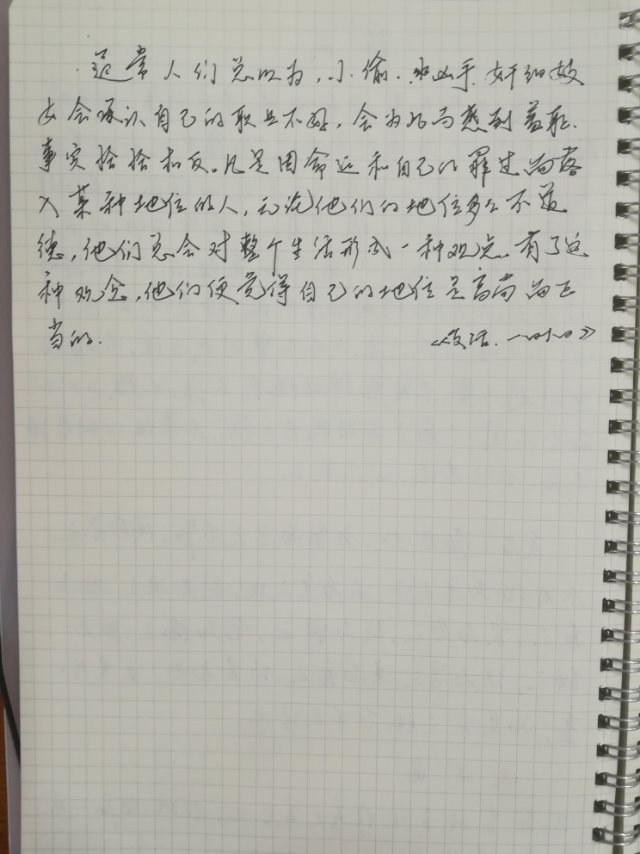 通常人们总以为,小偷、凶手、奸细、妓
女会承认自己的职业不好,会为此而感到羞耻.
事实恰恰相反。凡是因命运和自己的罪过而落
入某种地位的人,无论他们的地位多么不道
德,他们总会对整个生活形成一种观点.有了这
种观念,他们便觉得自己的地位是高尚而正
当的.
《复活.一